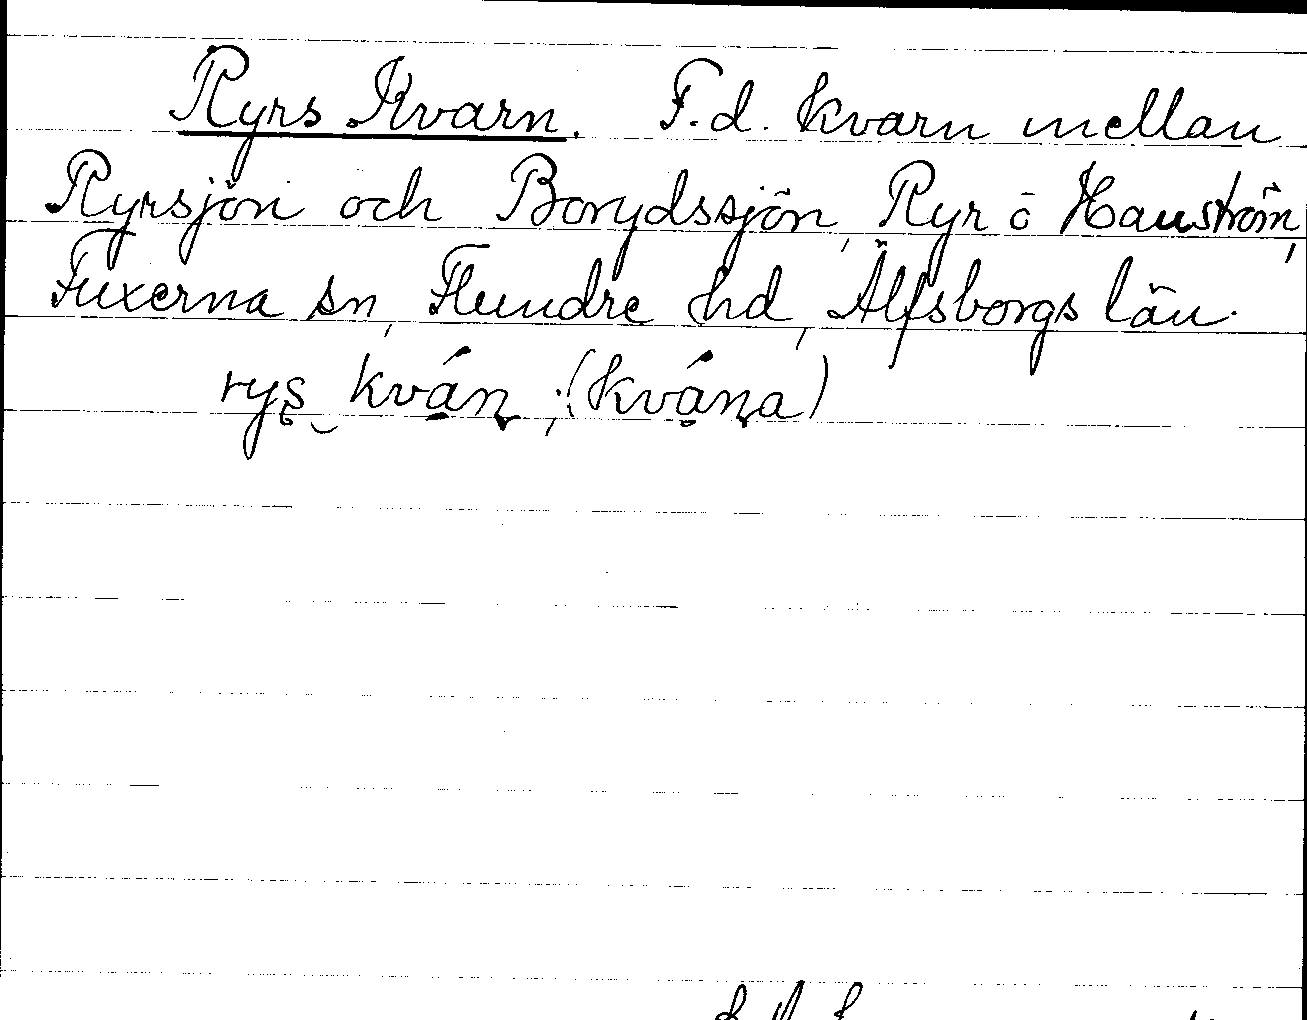 Ryrs Kvarn. F.d. kvarn mellan
Ryrsjön och Borydssjön, Ryr o Hanström,
Fuxerna sn, Flundre hd, Älfsborgs län.
rys kván; (kvána)